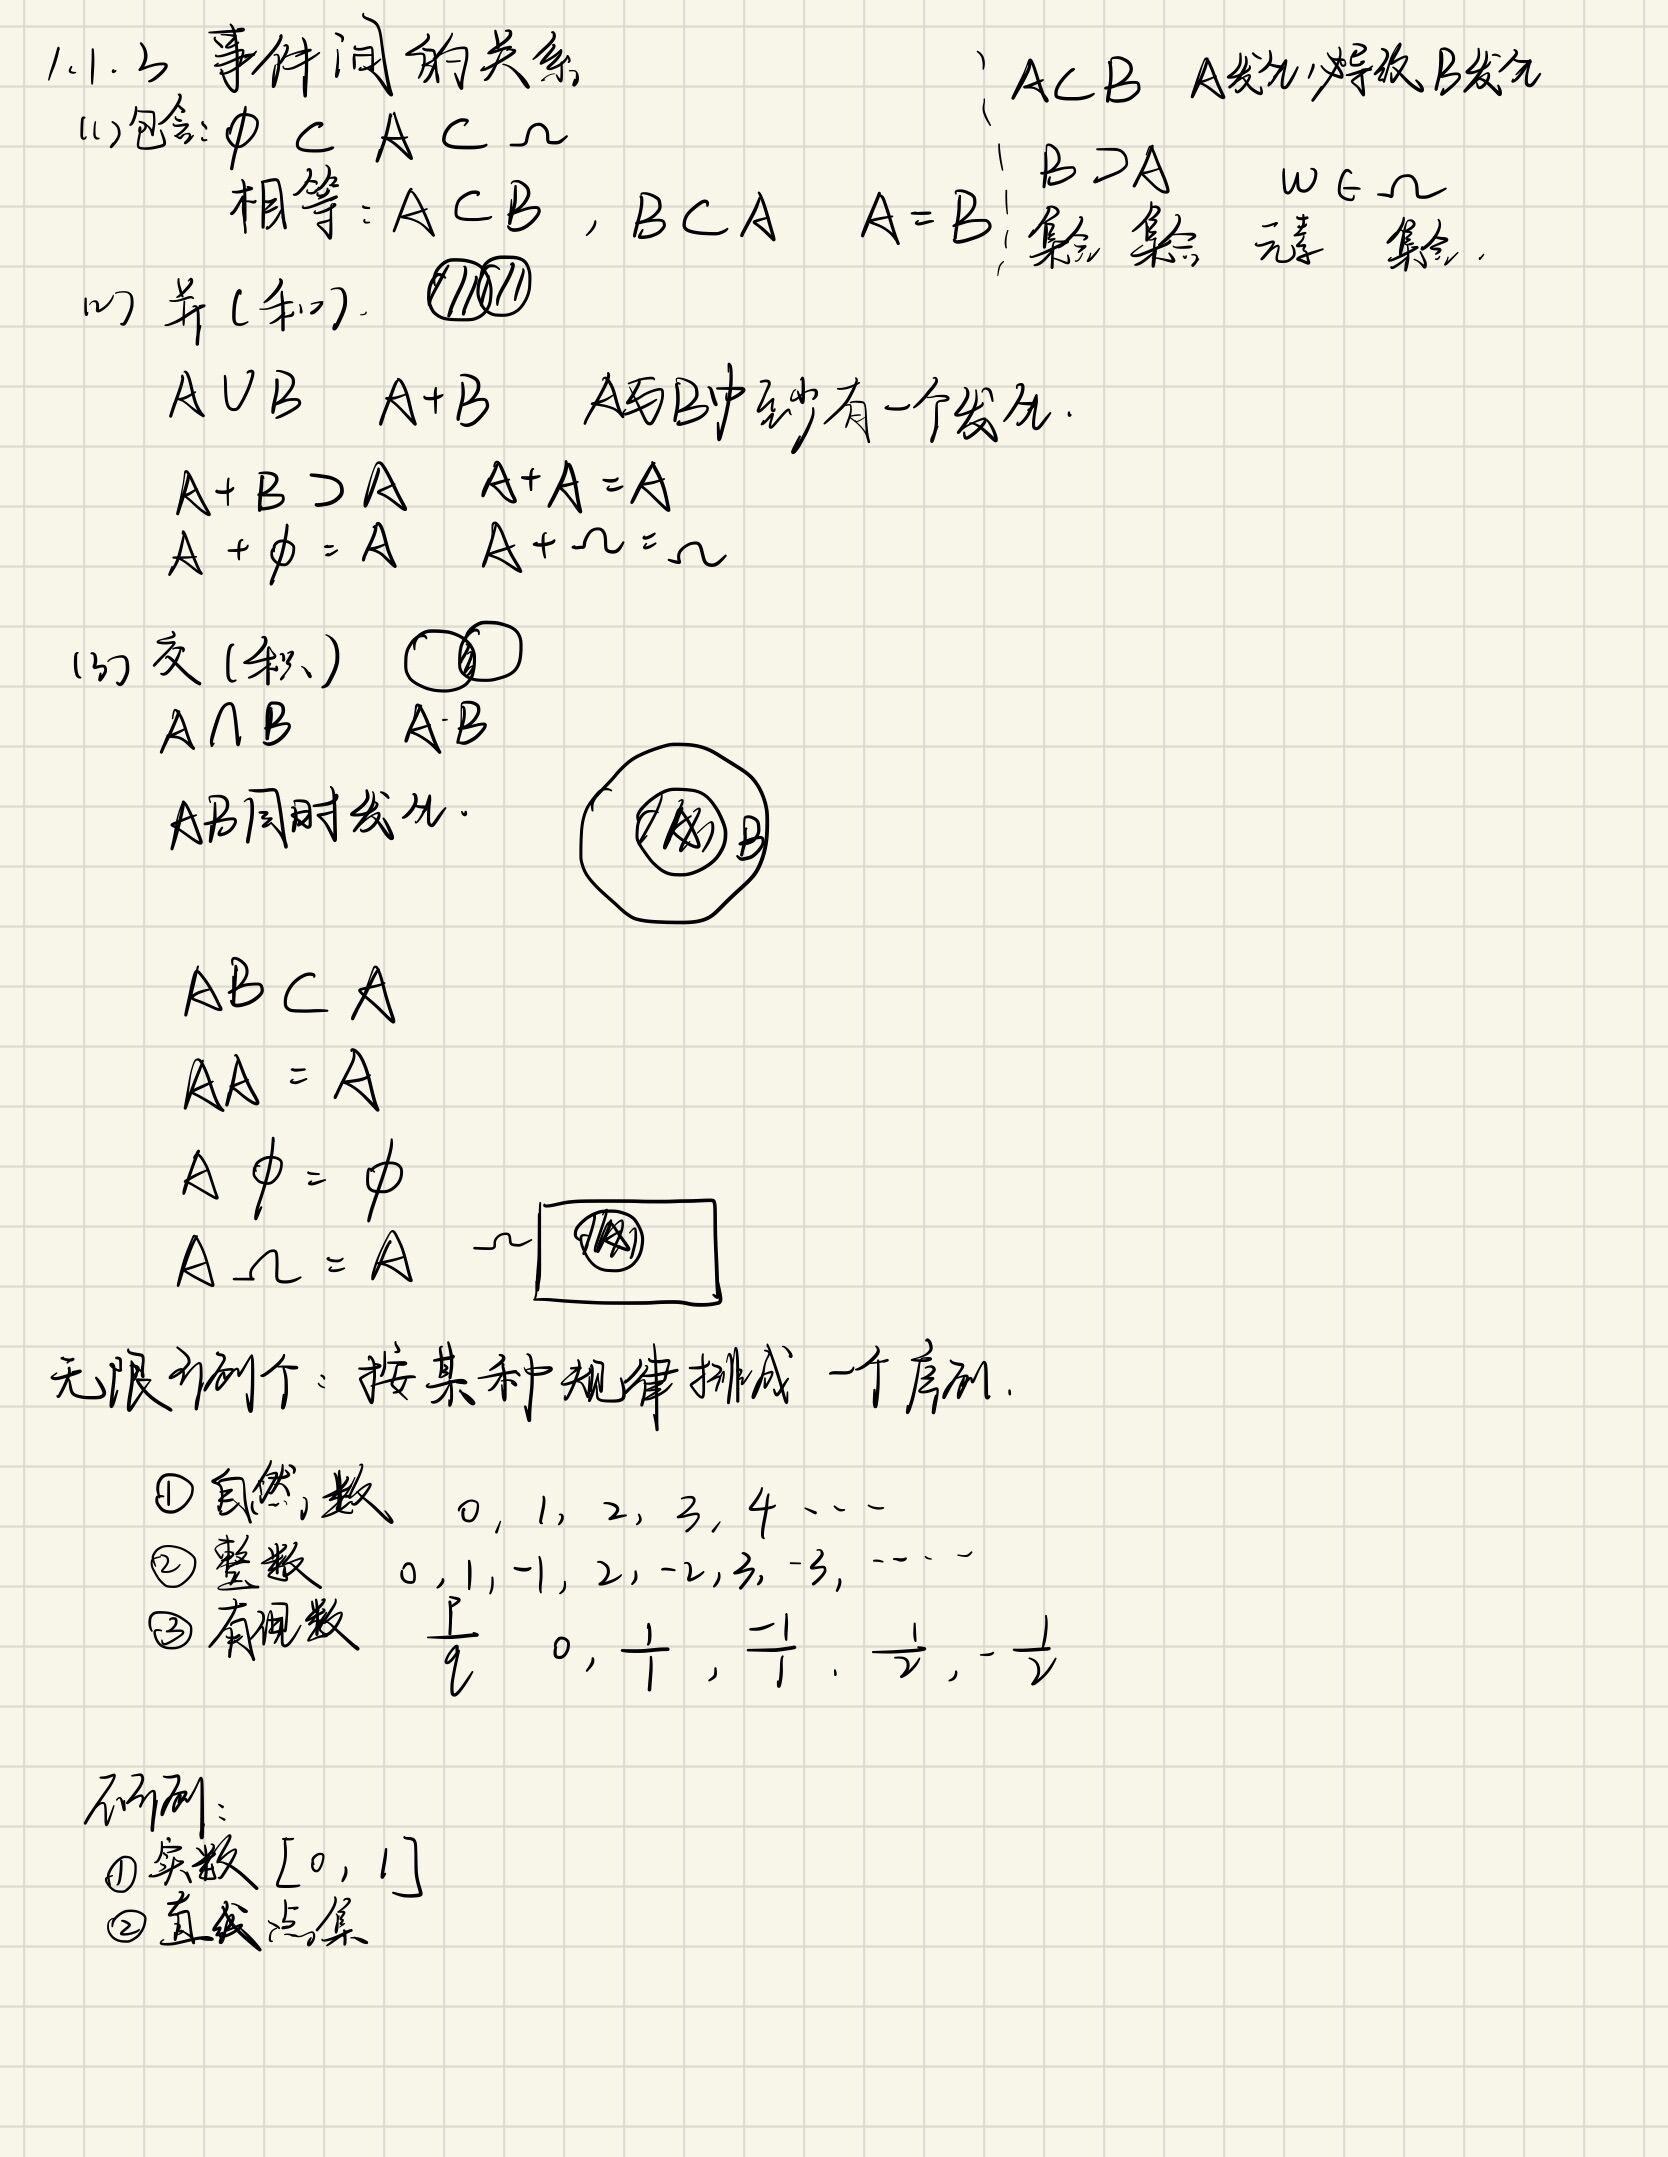 1.1.3 事件间的关系
(1) 包含: φ ⊂ A ⊂ Ω
相等: A⊂B , B⊂A A=B
A⊂B A发生必导致B发生
B⊃A ω∈Ω
集合 集合 元素 集合.
(2) 并(和).
A∪B A+B A与B中至少有一个发生.
A+B⊃A A+A=A
A+φ=A A+Ω=Ω
(3) 交(积)
A∩B A·B
AB同时发生.
A B
AB⊂A
AA=A
Aφ=φ
AΩ=A Ω A
无限可列个: 按某种规律排成一个序列.
① 自然数 0, 1, 2, 3, 4 ····
② 整数 0, 1, -1, 2, -2, 3, -3, ·····
③ 有理数 p/q 0, 1/1, -1/1, 1/2, -1/2
不可列:
① 实数 [0, 1]
② 直线点集